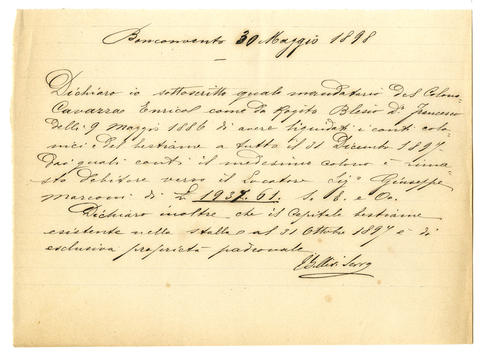 Bonconvento 30 Maggio 1898
Dichiaro io sottoscritto quale mandatario del Colono
Cavazza Enrico come da Rogito Blesio Dr Francesco
delli 9 Maggio 1886 di avere liquidati i conti colo-
nici e del bestiame a tutto il 31 Dicembre 1897.
Dai quali conti il medesimo colono è rima-
sto debitore verso il Locatore Sigr Giuseppe
Marconi di £ 1937.61. S. E. e O.
Dichiaro inoltre che il Capitale bestiame
esistente nella stalla al 31 Ottobre 1897 è di
esclusiva proprietà padronale